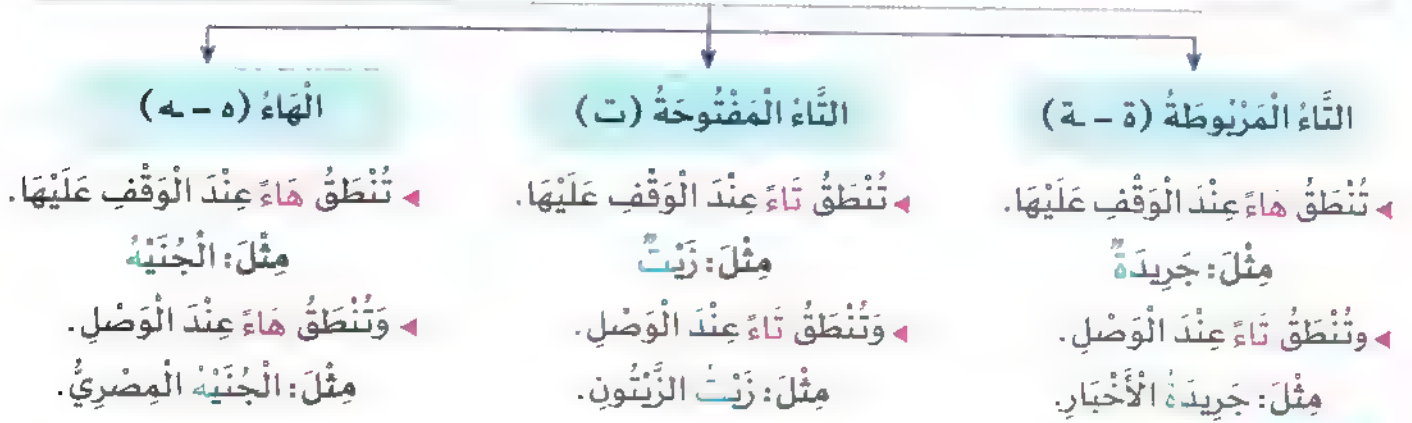 التَّاءُ الْمَرْبُوطَةُ (ة - ـة)
◂ تُنْطَقُ هَاءً عِنْدَ الْوَقْفِ عَلَيْهَا.
مِثْلَ: جَرِيدَةٌ
◂ وتُنْطَقُ تَاءً عِنْدَ الْوَصْلِ.
مِثْلَ: جَرِيدَةُ الْأَخْبَارِ.
التَّاءُ الْمَفْتُوحَةُ (ت)
◂ تُنْطَقُ تَاءً عِنْدَ الْوَقْفِ عَلَيْهَا.
مِثْلَ: زَيْتٌ
◂ وَتُنْطَقُ تَاءً عِنْدَ الْوَصْلِ.
مِثْلَ: زَيْتُ الزَّيْتُونِ.
الْهَاءُ (ه - ـه)
◂ تُنْطَقُ هَاءً عِنْدَ الْوَقْفِ عَلَيْهَا.
مِثْلَ: الْجُنَيْهُ
◂ وَتُنْطَقُ هَاءً عِنْدَ الْوَصْلِ.
مِثْلَ: الْجُنَيْهُ الْمِصْرِيُّ.